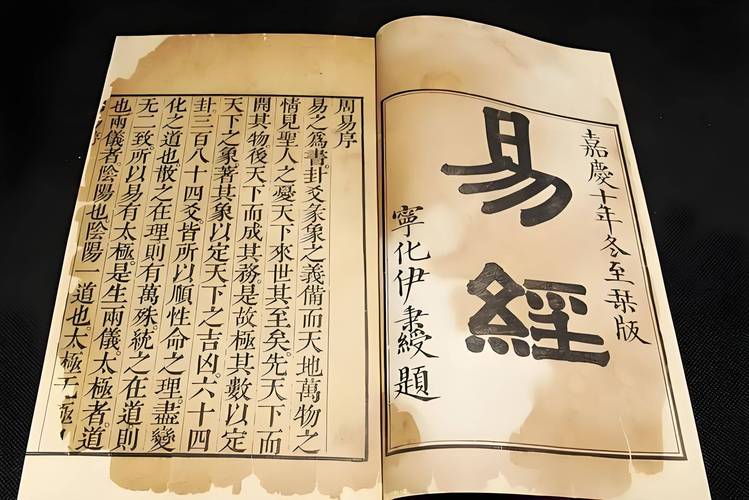 嘉慶十年冬至栞版
易經
寧化伊秉綬題
周易序
易之爲書。卦爻彖象之義備。而天地萬物之
情見。聖人之憂天下來世其至矣。先天下而
開其物。後天下而成其務。是故極其數以定
天下之象。著其象以定天下之吉凶。六十四
卦。三百八十四爻。皆所以順性命之理。盡變
化之道也。散之在理。則有萬殊。統之在道。則
无二致。所以易有太極。是生兩儀。太極者。道
也。兩儀者。陰陽也。陰陽一道也。太極无極